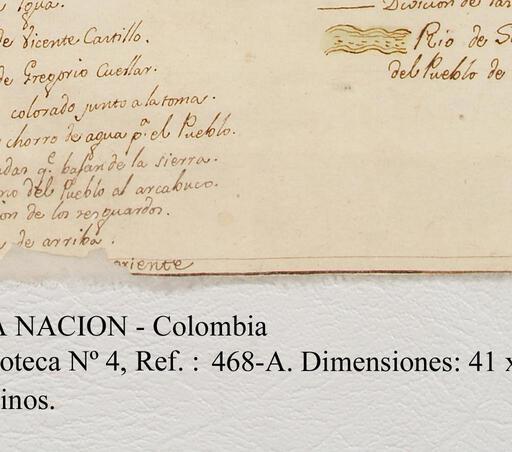 Igua.
de Vicente Cartillo.
de Gregorio Cuellar.
colorado junto a la toma.
chorro de agua p.a el Pueblo.
adas q.e bajan de la sierra.
no del Pueblo al arcabuco.
ion de los resguardos.
de arriba.
oriente
Division de
Rio de S
del Pueblo de
A NACION - Colombia
oteca Nº 4, Ref. : 468-A. Dimensiones: 41 x
inos.